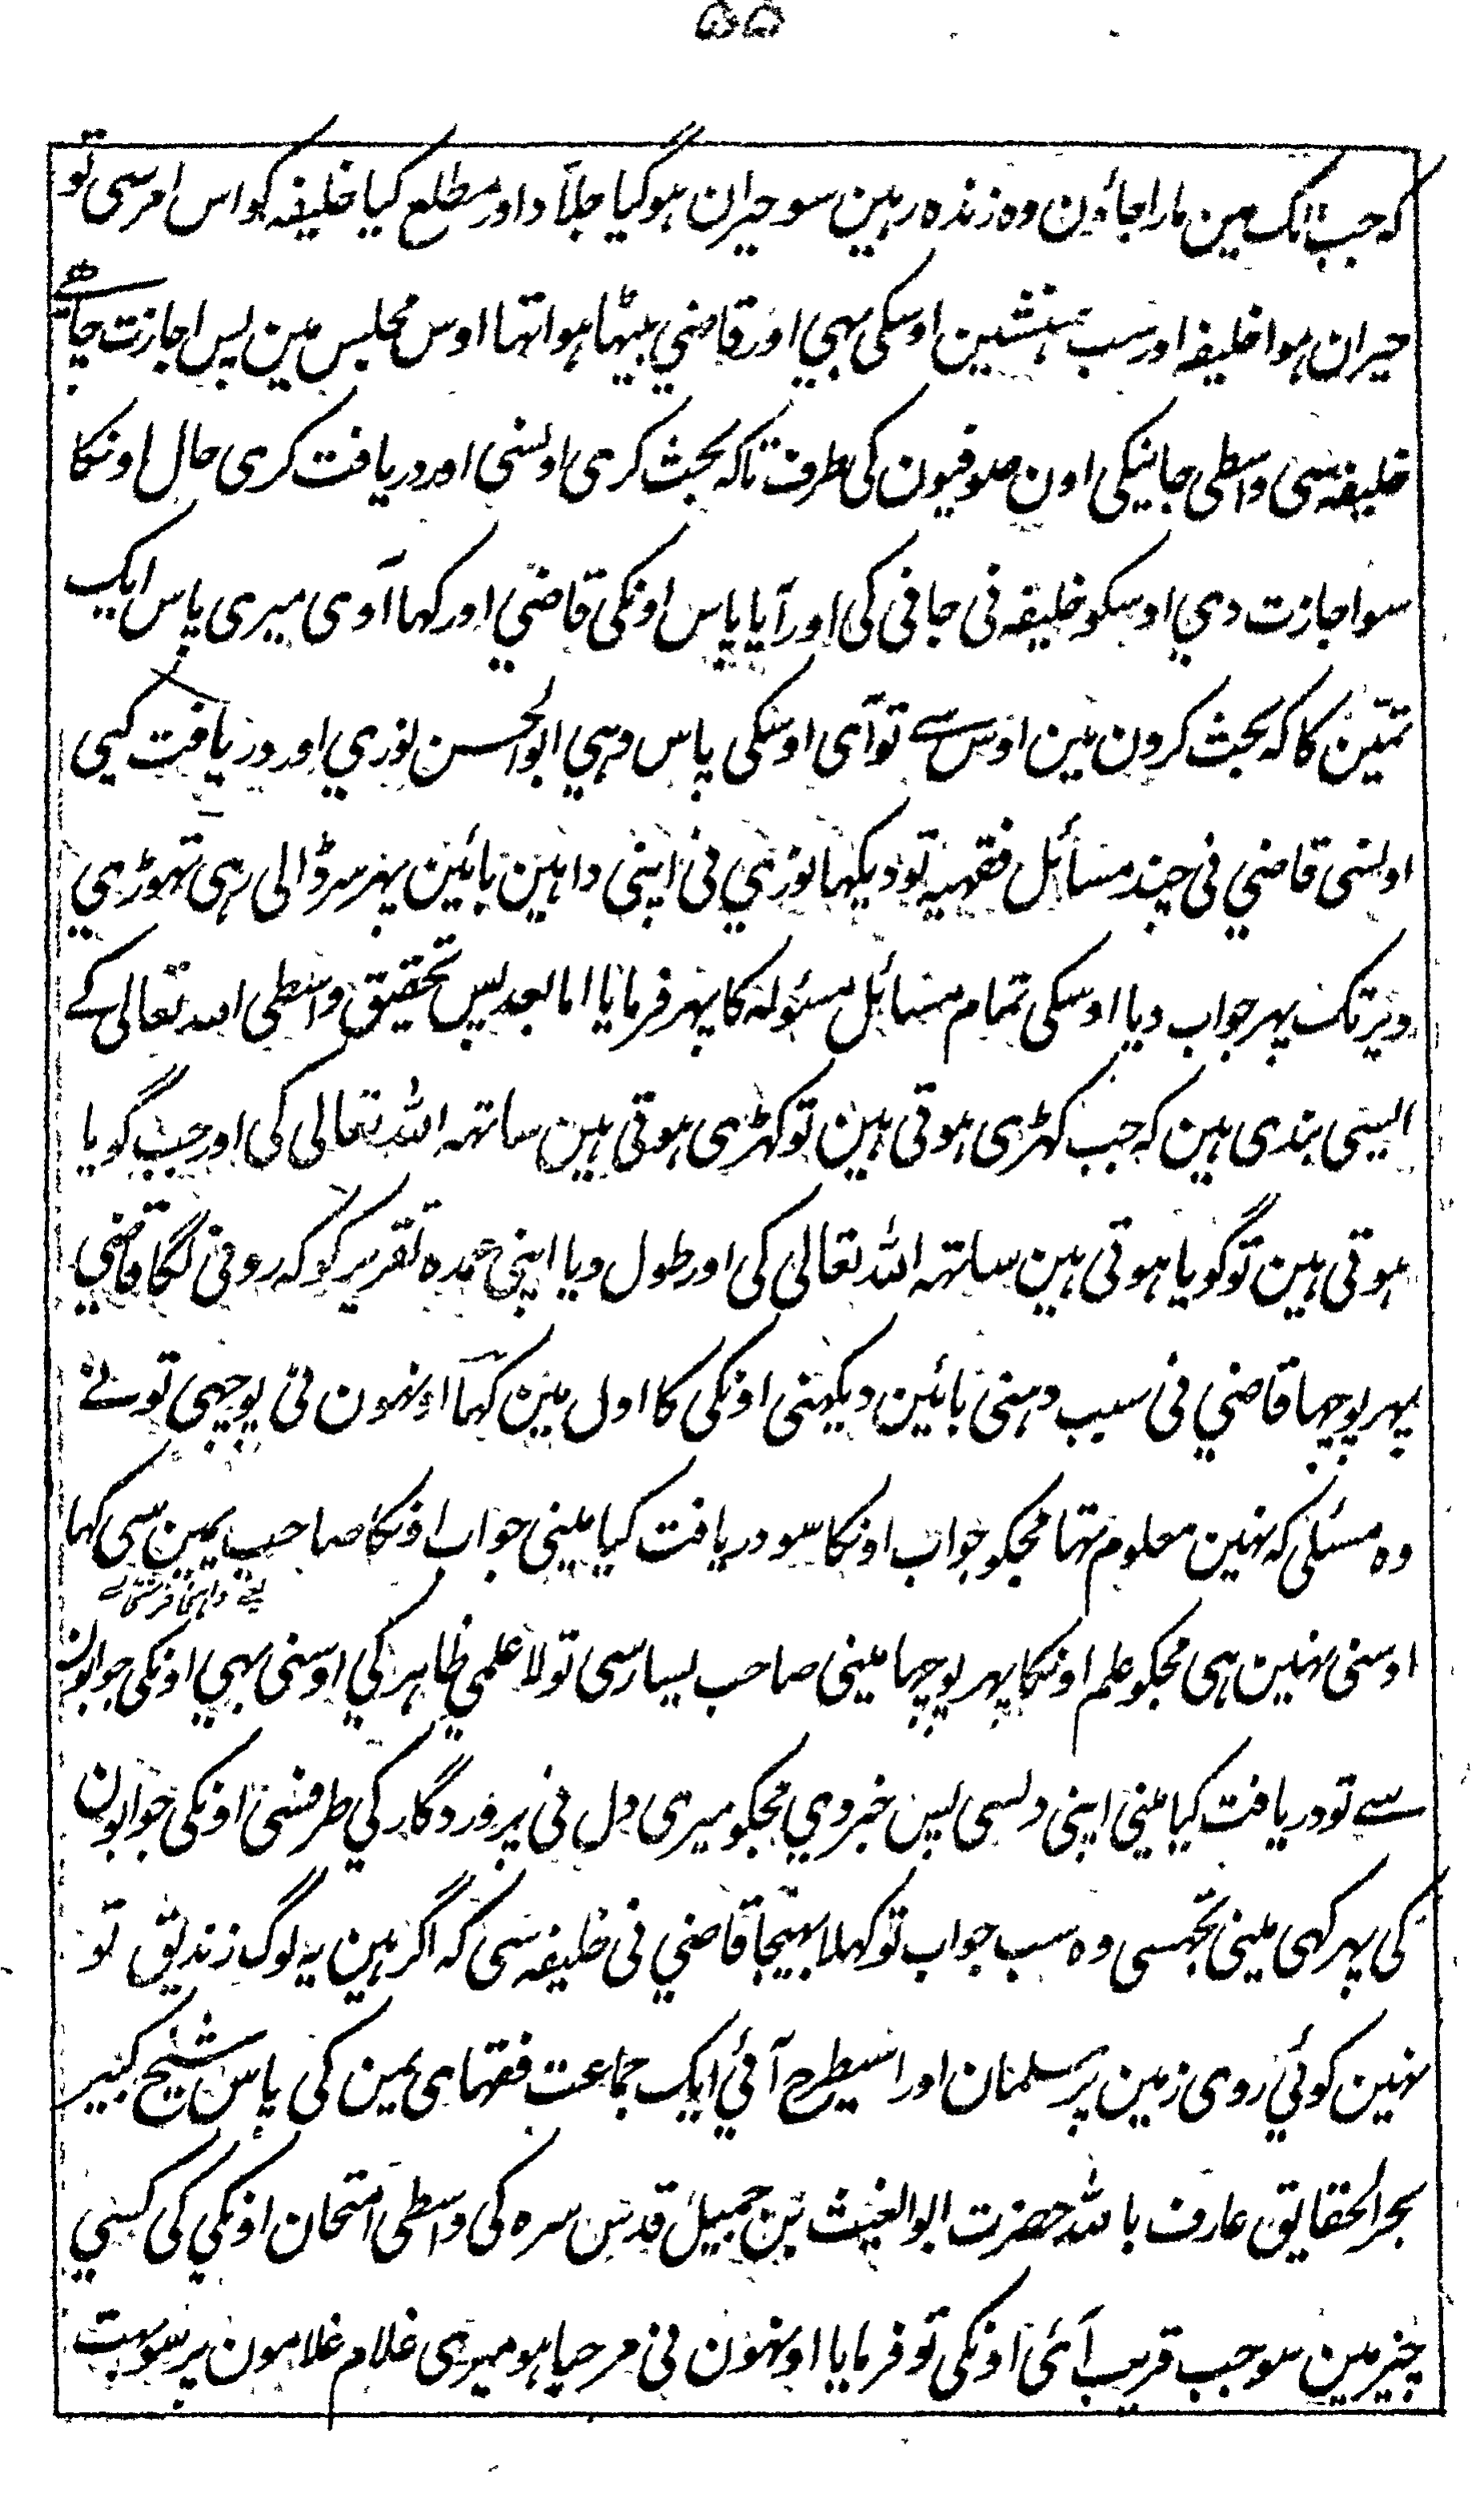 ۵۵
کہ جب تک مین مارا جاؤن وہ زندہ رہین سو حیران ہوگیا جلاّد اور مطلع کیا خلیفہ کو اس امر سی تو
حیران ہوا خلیفہ اور سب ہمنشین اوسکی بہی اور قاضي بیٹہا ہوا تہا اوس مجلس مین پس اجازت چاہے
خلیفہ سی واسطی جانیکی اون صوفیون کی طرف تاکہ بحث کری اونسی اور دریافت کری حال اونکا
سو اجازت دي اوسکو خلیفہ نی جانی کی اور آیا پاس اونکی قاضي اور کہا آوی میری پاس ایک
تمین کا کہ بحث کرون مین اوس سے تو آی اوسکی پاس وہي ابوالحسن نوري اور دریافت کیی
اونسی قاضي نی چند مسائل فقہیہ تو دیکہا نوري نی اپنی داہین بائین پہر سر ڈالی رہی تہوڑي
دیر تک پہر جواب دیا اوسکی تمام مسائل مسئولہ کا پہر فرمایا اما بعد پس تحقیق واسطی اللہ تعالی کے
ایسی بندی ہین کہ جب کہڑی ہوتی ہین تو کہڑی ہوتی ہین ساتہہ اللہ تعالی کی اور جب گویا
ہوتی ہین تو گویا ہوتی ہین ساتہہ اللہ تعالی کی اور طول دیا اپنی عمدہ تقریر کو کہ رونی لگا قاضي
پہر پوچہا قاضي نی سبب دہنی بائین دیکہنی اونکی کا اول مین کہا اونہون نی پوچہی تو نے
وہ مسئلی کہ نہین معلوم تہا مجکو جواب اونکا سو دریافت کیا مینی جواب اونکا صاحب یمین سی کہا
یعنے داہنا فرشتہ
اوسنی نہین ہی مجکو علم اونکا پہر پوچہا مینی صاحب یسار سی تو لا علمي ظاہر کي اوسنی بہي اونکی جوابون
سے تو دریافت کیا مینی اپنی دلسی پس خبر دي مجکو میری دل نی پروردگار کي طرفسی اونکی جوابون
کی پہر کہی مینی تجہسی وہ سب جواب تو کہلا بہیجا قاضي نی خلیفہ سی کہ اگر ہین یہ لوگ زندیق تو
نہین کوئي روی زمین پر مسلمان اور اسیطرح آئي ایک جماعت فقہای یمن کی پاس شیخ کبیر
بحر الحقایق عارف باللہ حضرت ابو الغیث بن جمیل قدس سرہ کی واسطی امتحان اونکي کی کسي
چیز مین سو جب قریب آئی اونکی تو فرمایا اونہون نی مرحبا ہو میری غلام غلامون پر سو بہت